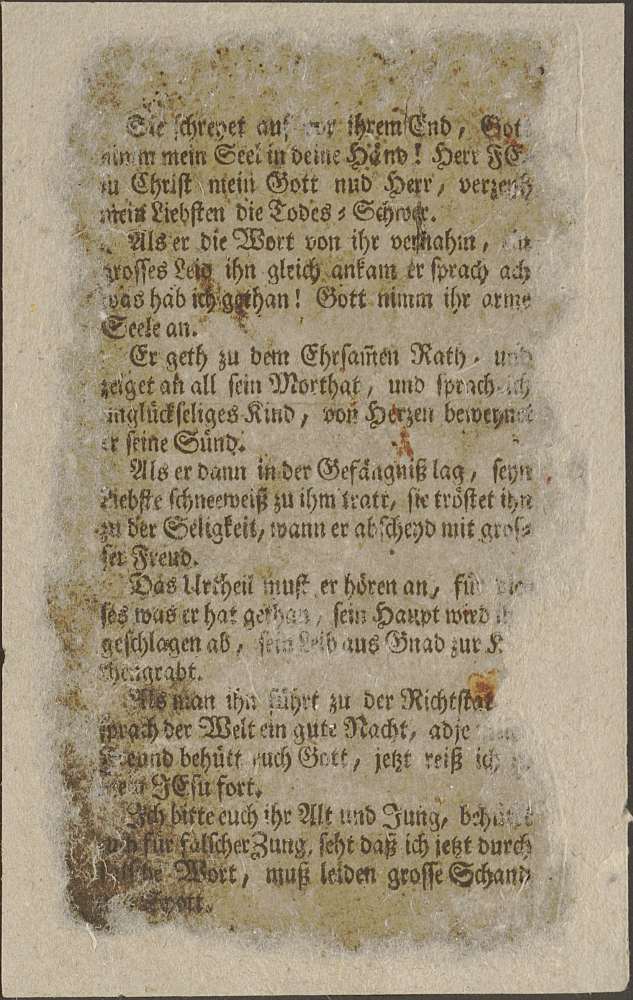 Sie schreyet auf vor ihrem End, Got
nimm mein Seel in deine Händ! Herr JE-
su Christ mein Gott nud Herr, verzeyh
mein Liebsten die Todes-Schwer.
Als er die Wort von ihr vernahm, ein
grosses Leid ihn gleich ankam er sprach ach
was hab ich gethan! Gott nimm ihr arme
Seele an.
Er geth zu dem Ehrsam̅en Rath, und
zeiget an all sein Morthat, und sprach ich
unglückseliges Kind, von Herzen beweynet
er seine Sünd.
Als er dann in der Gefängniß lag, seyn
Liebste schneeweiß zu ihm tratt, sie tröstet ihn
zu der Seligkeit, wann er abscheyd mit gros-
ser Freud.
Das Urtheil must er hören an, für die-
ses was er hat gethan, sein Haupt wird
geschlagen ab, sein Leib aus Gnad zur
Als man ihn führt zu der Richtstat
sprach der Welt ein gute Nacht, adje
Freund behütt euch Gott, jetzt reiß ich
JEsu fort.
Ich bitte euch ihr Alt und Jung, behütet
euch für falscher Zung, seht daß ich jetzt durch
falsche Wort, muß leiden grosse Schand
Spott.